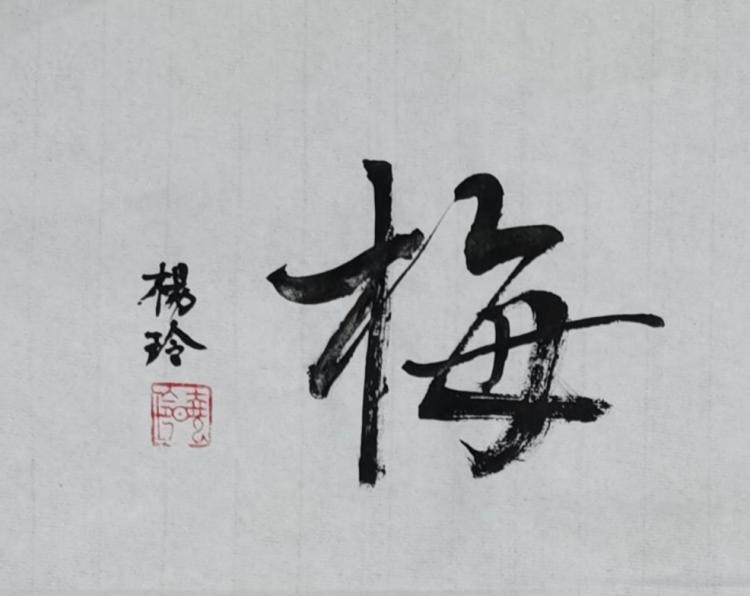 梅
楊
玲